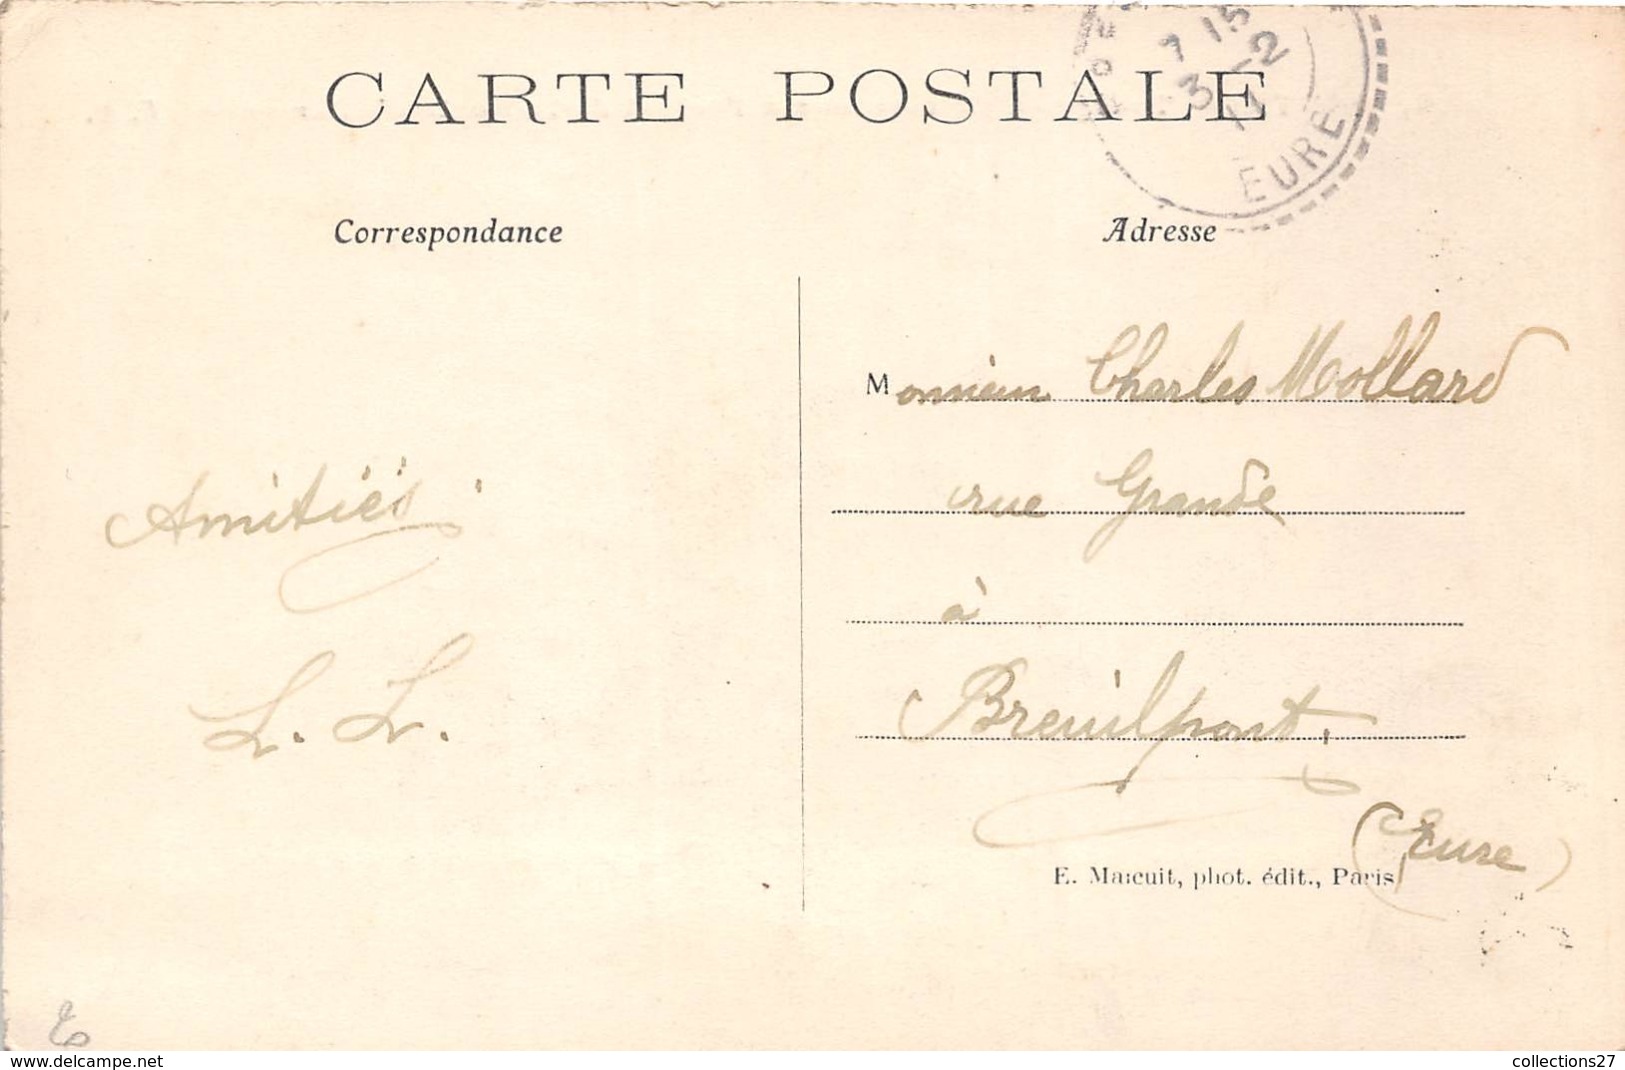 CARTE POSTALE
7 15
3 -2
EURE
Correspondance
Adresse
Monsieur Charles Mollard
rue Grande
à
Breuilpont,
(Eure)
Amitiés
L. L.
E. Marcuit, phot. édit., Paris
www.delcampe.net
collections27